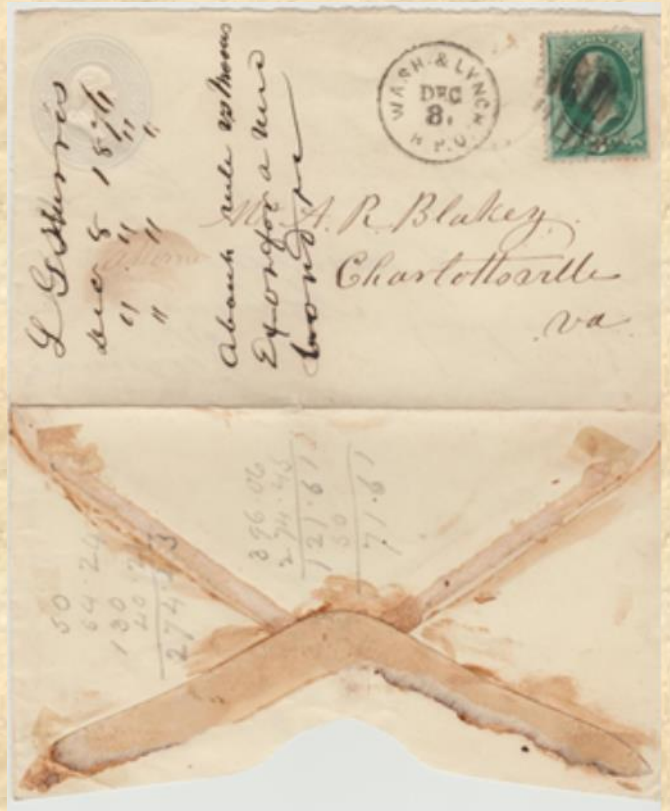 WASH. & LYNCH.
DEC
8.
R.P.O.
Mr. A. R. Blakey
Charlottesville
va
L G Harris
Dec 8 1876
" " "
" "
About rule
Exor for a new
bond
396.06
274.45
121.61
50
71.61
50
64.24
130
274